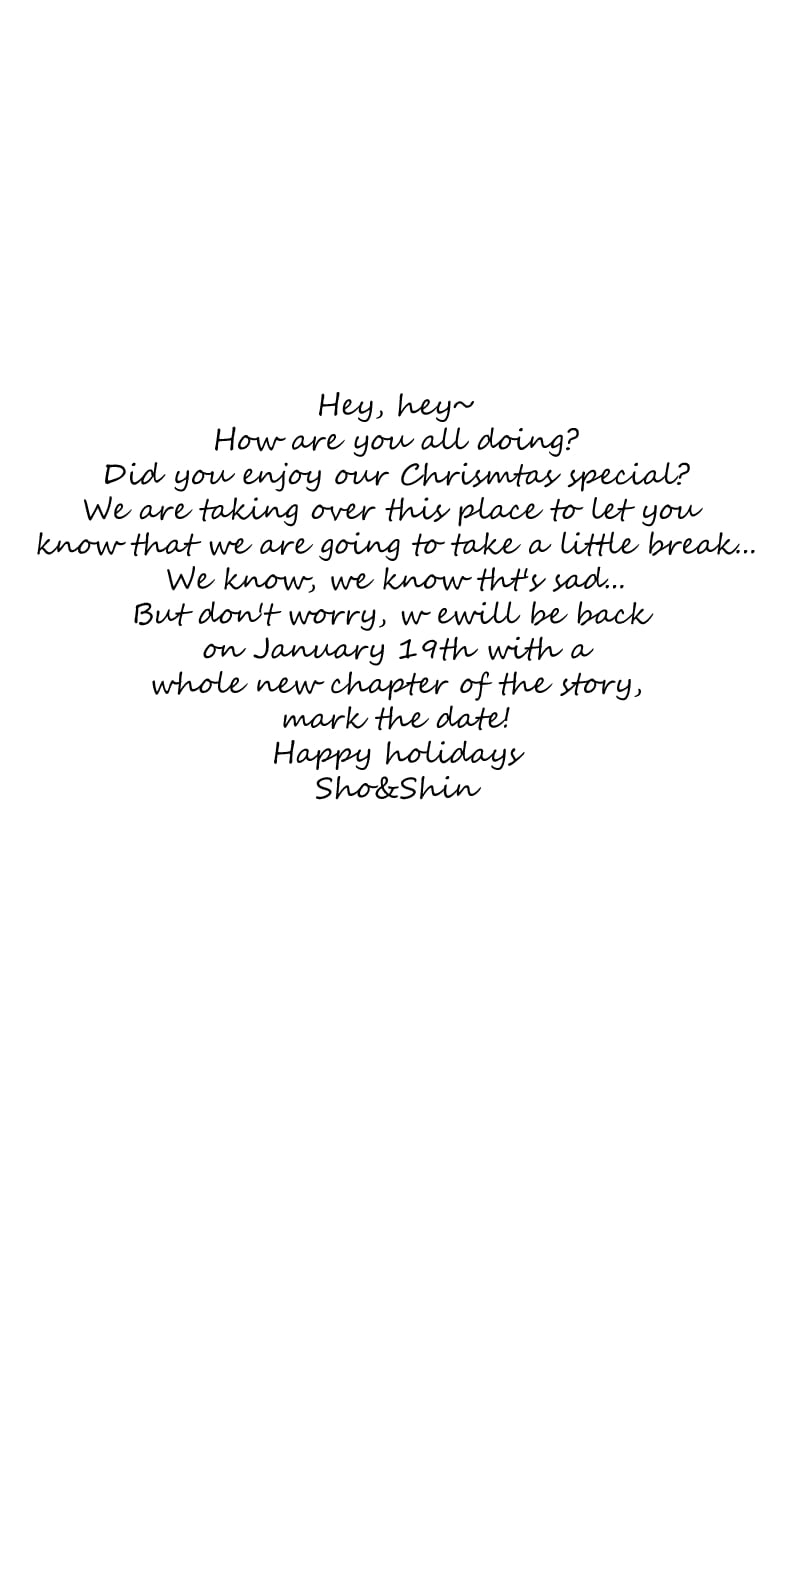 Hey, hey~
How are you all doing?
Did you enjoy our Chrismtas special?
We are taking over this place to let you
know that we are going to take a little break...
We know, we know tht's sad...
But don't worry, w ewill be back
on January 19th with a
whole new chapter of the story,
mark the date!
Happy holidays
Sho&Shin